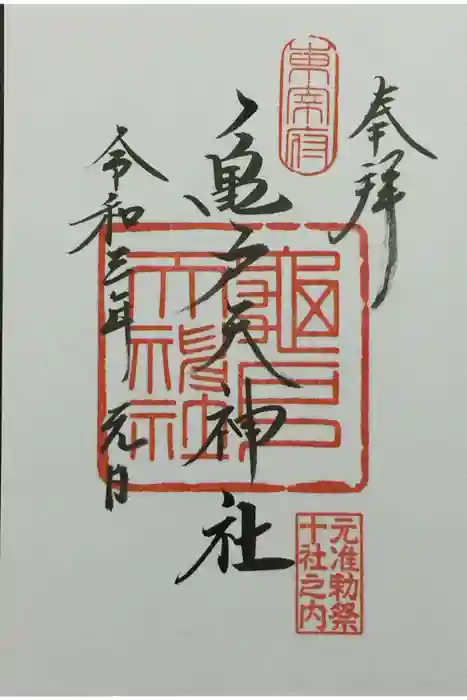 奉拝
東宰府
亀戸天神社
令和三年 元日
亀戸
天神社
元准勅祭
十社之内